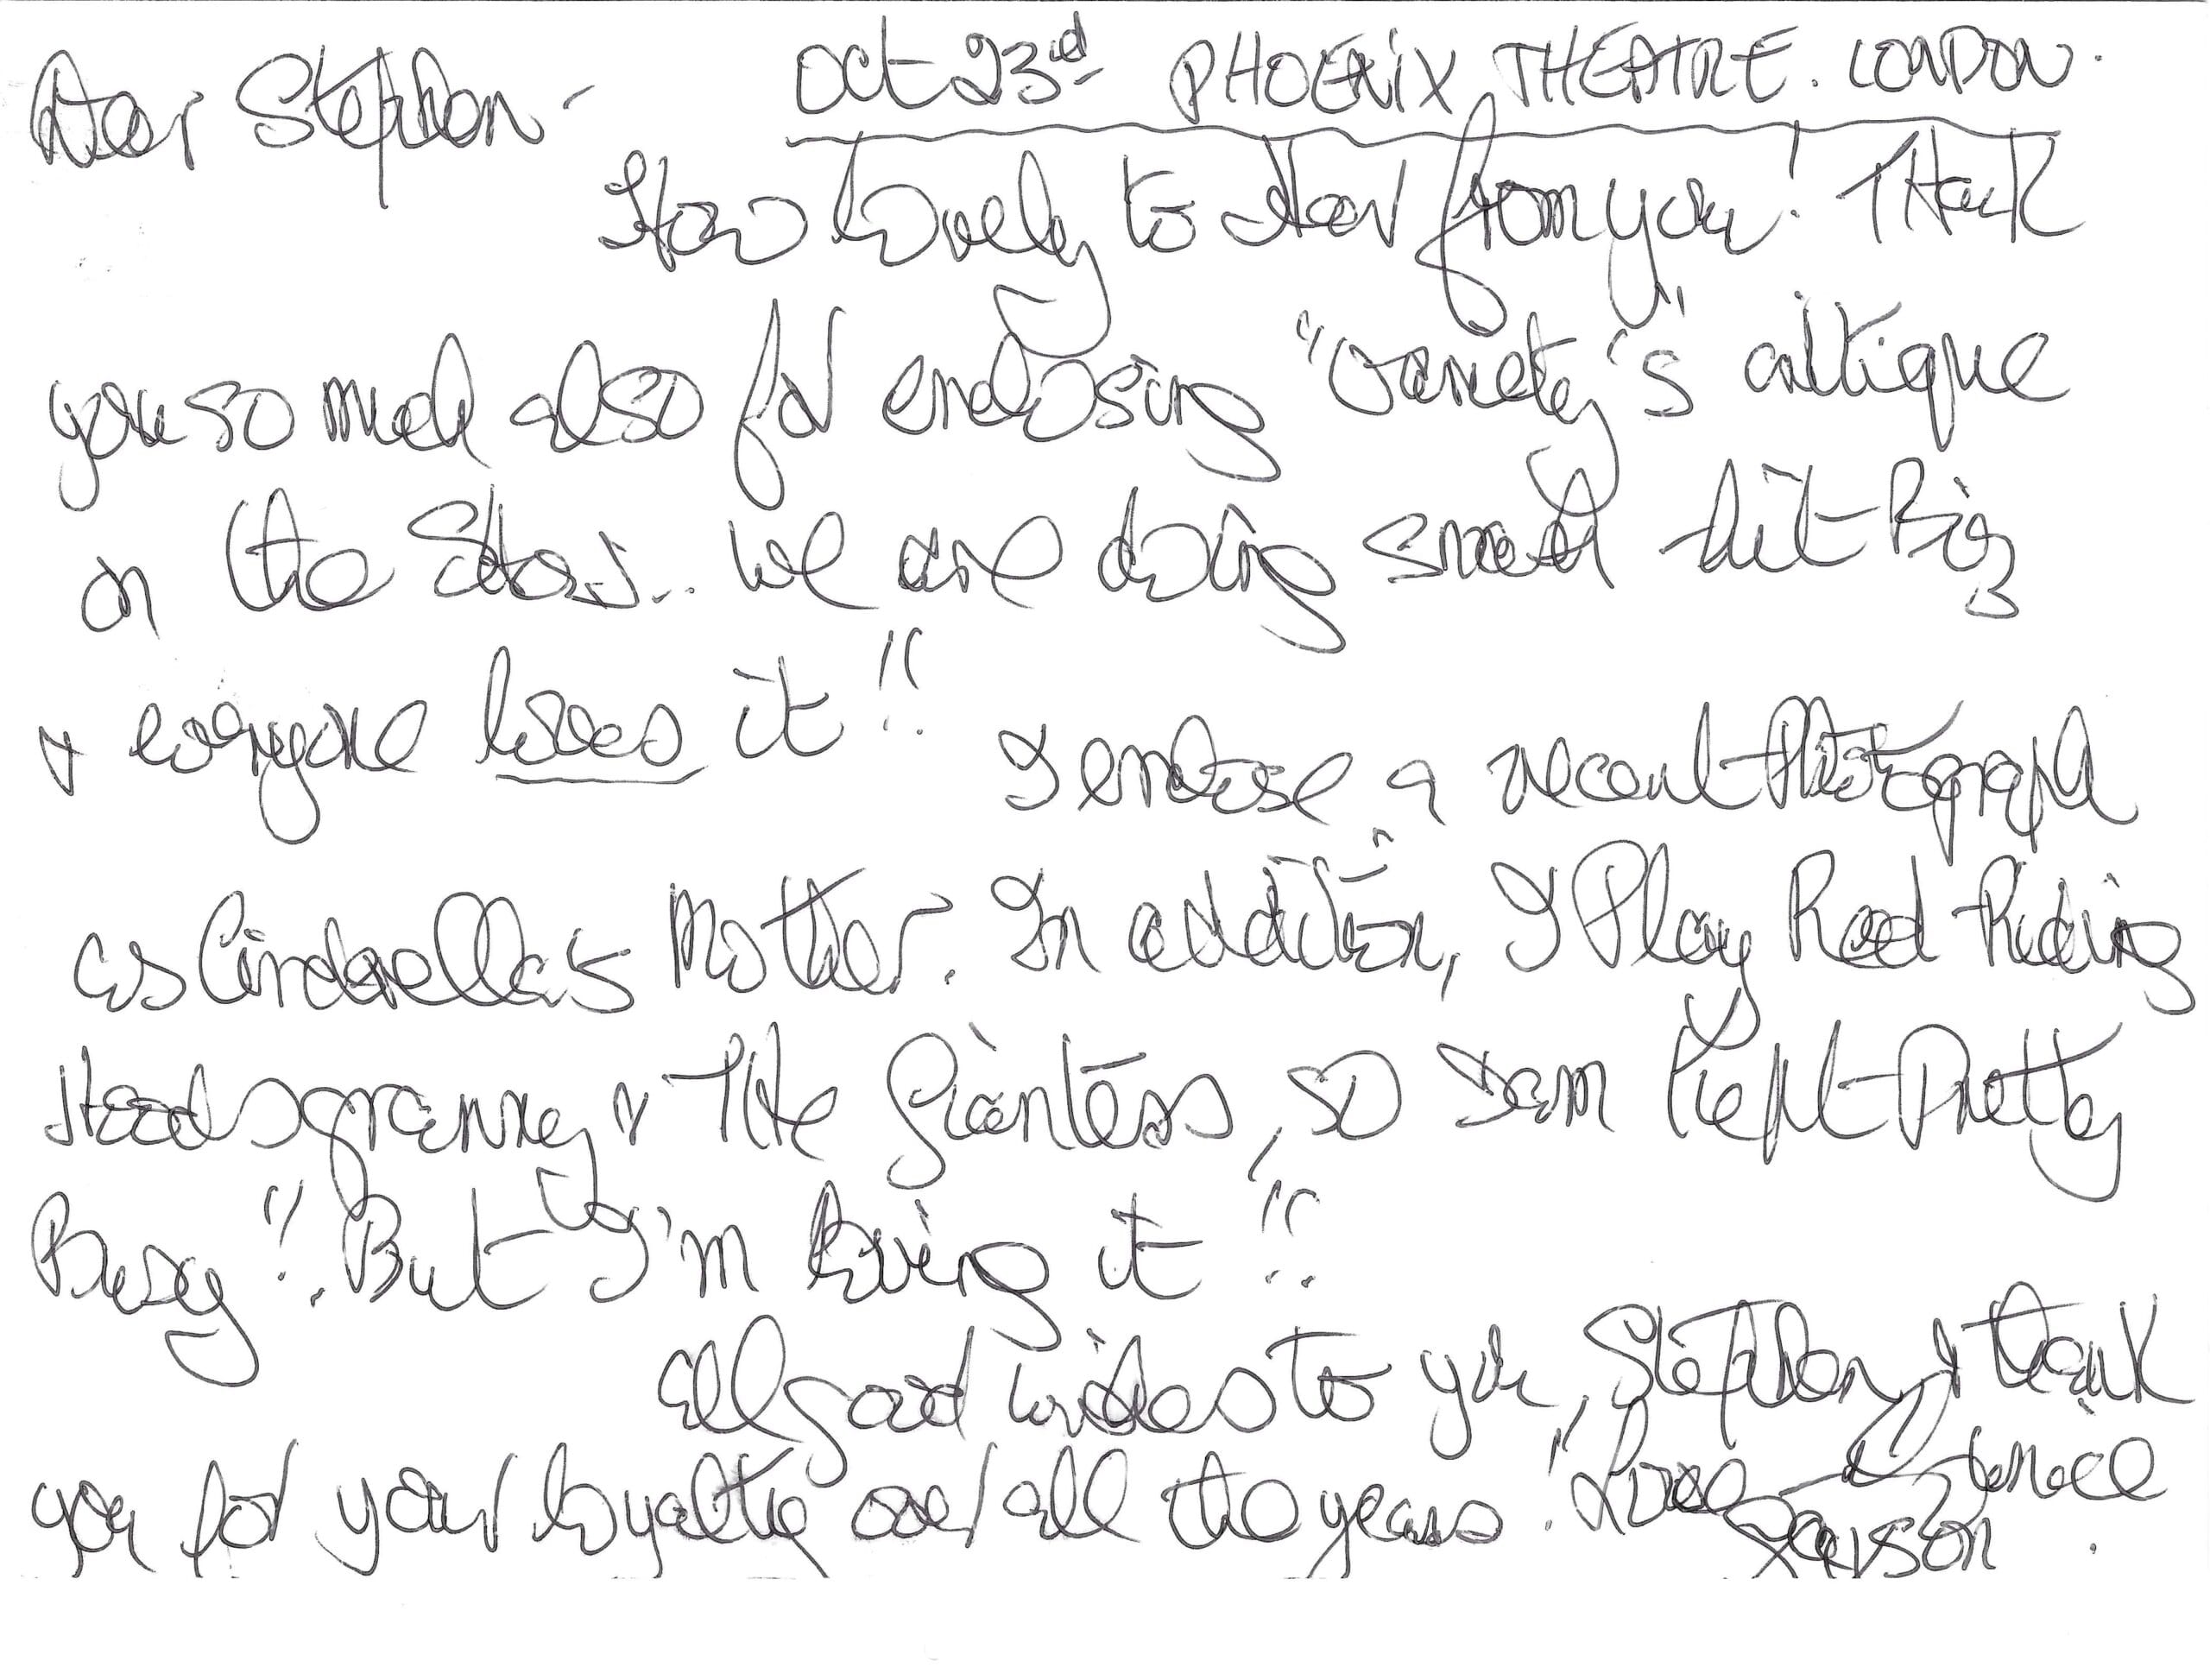 Oct 23rd PHOENiX THEATRE. LONDON.
Dear Stephen -
How lovely to Hear from you! THank
you so much also for enclosing "Variety"'s critique
on the Show.. We are doing smash hit Biz
& everyone loves it!!
I enclose a recent Photograph
as Cinderella's Mother. In addition, I Play Red Riding
Hoods granny & THe Giantess, so I am Kept Pretty
Busy!!. But I'm loving it!!
All good wishes to you, Stephen, & thank
you for your loyalty over all the years! Love